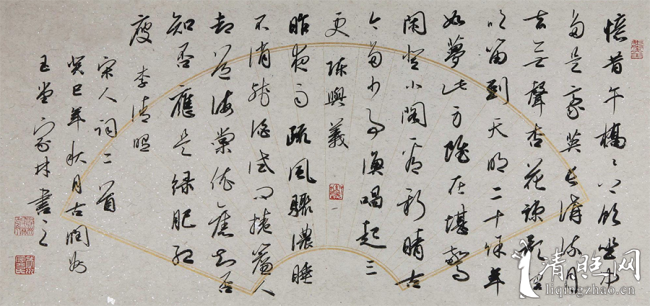 憶昔午橋〻上飲坐中
多是豪英長溝流月
去無聲杏花疎影里
吹笛到天明二十餘年
如夢此身雖在堪驚
閑登小閣看新晴古
今多少事漁唱起三
更 陳與義
昨夜雨疏風驟濃睡
不消殘酒試問捲簾人
却道海棠依舊知否
知否應是綠肥紅
瘦 李清照
宋人詞二首
癸巳年秋月古潤州
玉堂家林書之
清旺网
liqingzhao.com